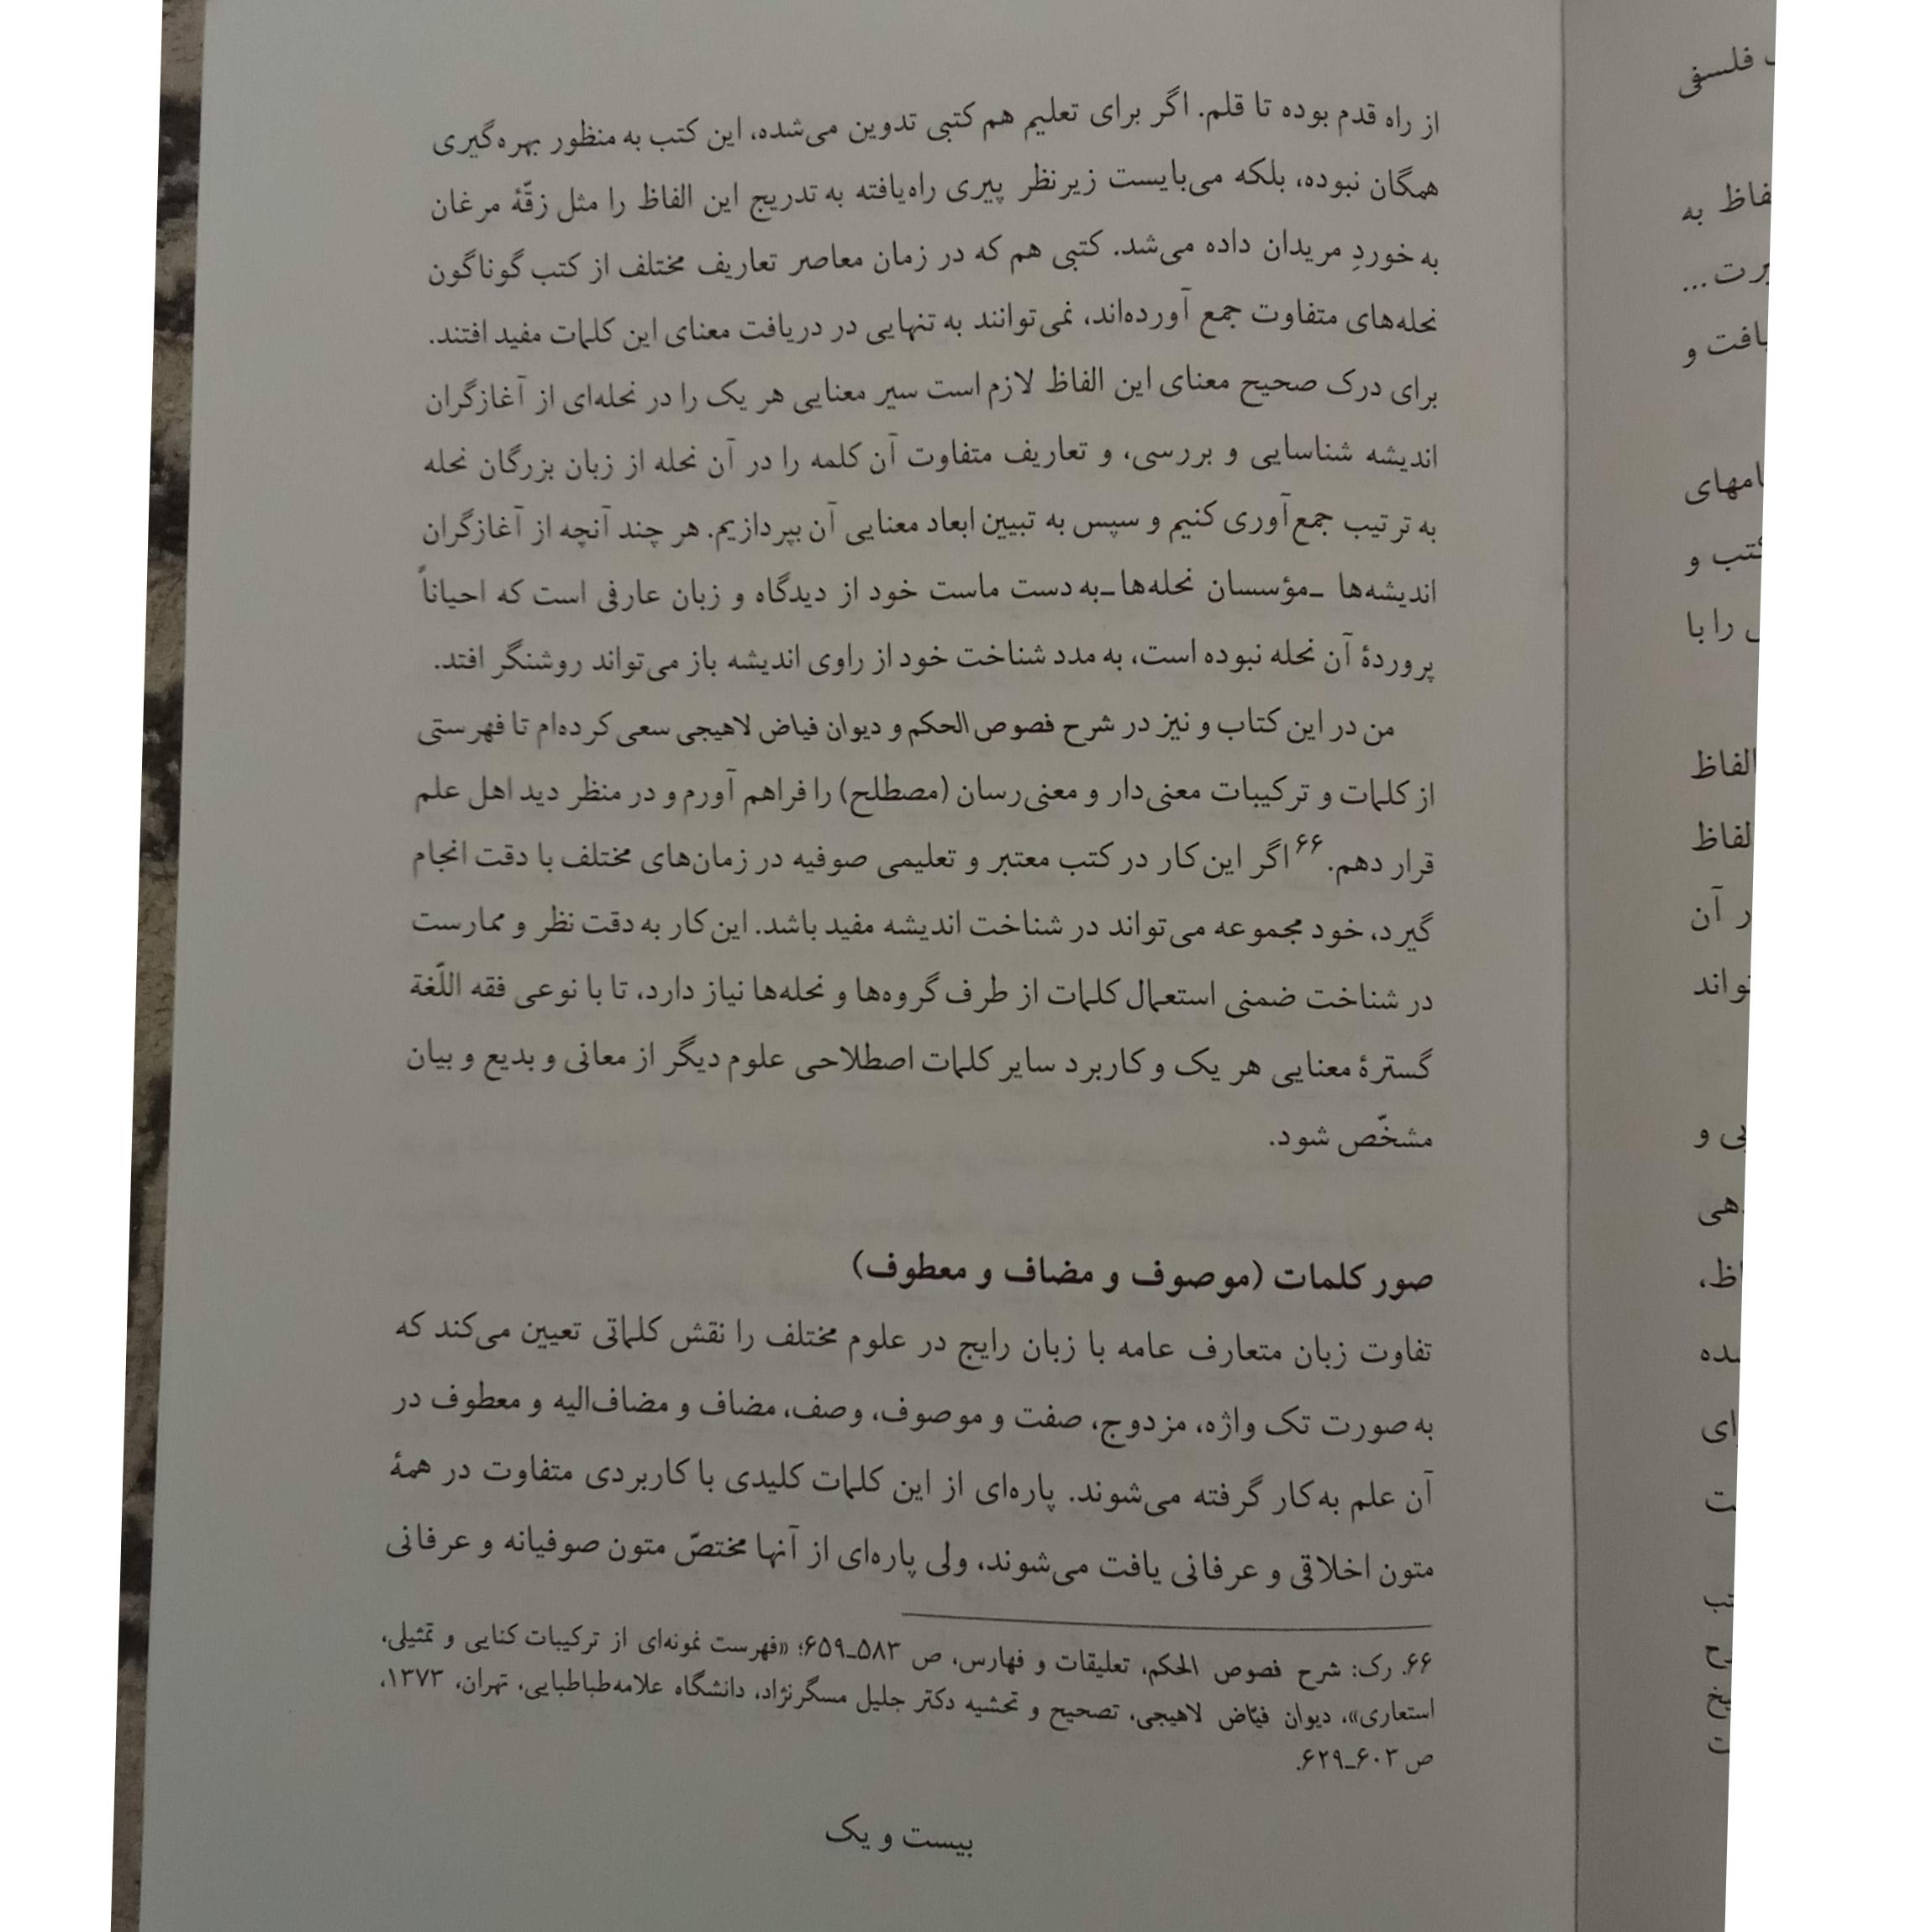 از راه قدم بوده تا قلم. اگر برای تعلیم هم کتبی تدوین می‌شده، این کتب به منظور بهره‌گیری
همگان نبوده، بلکه می‌بایست زیرنظر پیری راه‌یافته به تدریج این الفاظ را مثل زقّهٔ مرغان
به خوردِ مریدان داده می‌شد. کتبی هم که در زمان معاصر تعاریف مختلف از کتب گوناگون
نحله‌های متفاوت جمع آورده‌اند، نمی‌توانند به تنهایی در دریافت معنای این کلمات مفید افتند.
برای درک صحیح معنای این الفاظ لازم است سیر معنایی هر یک را در نحله‌ای از آغازگران
اندیشه شناسایی و بررسی، و تعاریف متفاوت آن کلمه را در آن نحله از زبان بزرگان نحله
به ترتیب جمع‌آوری کنیم و سپس به تبیین ابعاد معنایی آن بپردازیم. هر چند آنچه از آغازگران
اندیشه‌ها ـ‌مؤسسان نحله‌ها‌ـ به دست ماست خود از دیدگاه و زبان عارفی است که احیاناً
پروردهٔ آن نحله نبوده است، به مدد شناخت خود از راوی اندیشه باز می‌تواند روشنگر افتد.
من در این کتاب و نیز در شرح فصوص الحکم و دیوان فیاض لاهیجی سعی کرده‌ام تا فهرستی
از کلمات و ترکیبات معنی‌دار و معنی‌رسان (مصطلح) را فراهم آورم و در منظر دید اهل علم
قرار دهم.۶۶ اگر این کار در کتب معتبر و تعلیمی صوفیه در زمان‌های مختلف با دقت انجام
گیرد، خود مجموعه می‌تواند در شناخت اندیشه مفید باشد. این کار به دقت نظر و ممارست
در شناخت ضمنی استعمال کلمات از طرف گروه‌ها و نحله‌ها نیاز دارد، تا با نوعی فقه اللّغة
گسترهٔ معنایی هر یک و کاربرد سایر کلمات اصطلاحی علوم دیگر از معانی و بدیع و بیان
مشخّص شود.
صور کلمات (موصوف و مضاف و معطوف)
تفاوت زبان متعارف عامه با زبان رایج در علوم مختلف را نقش کلماتی تعیین می‌کند که
به صورت تک واژه، مزدوج، صفت و موصوف، وصف، مضاف و مضاف‌الیه و معطوف در
آن علم به‌کار گرفته می‌شوند. پاره‌ای از این کلمات کلیدی با کاربردی متفاوت در همهٔ
متون اخلاقی و عرفانی یافت می‌شوند، ولی پاره‌ای از آنها مختصّ متون صوفیانه و عرفانی
۶۶. رک: شرح فصوص الحکم، تعلیقات و فهارس، ص ۵۸۳ـ۶۵۹؛ «فهرست نمونه‌ای از ترکیبات کنایی و تمثیلی،
استعاری»، دیوان فیّاض لاهیجی، تصحیح و تحشیه دکتر جلیل مسگرنژاد، دانشگاه علامه‌طباطبایی، تهران، ۱۳۷۳،
ص ۶۰۳ـ۶۲۹.
بیست و یک
فلسفی
به
و
را با
الفاظ
آن
و